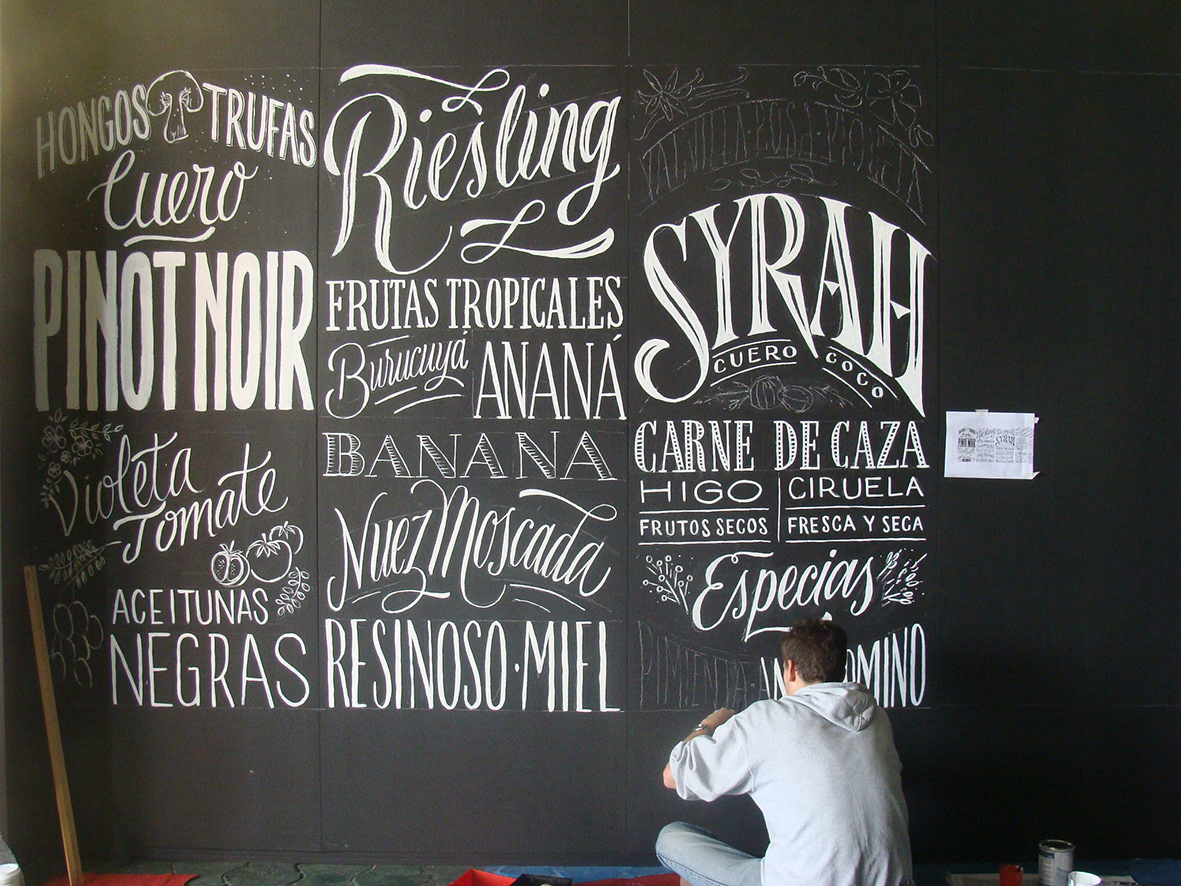 HONGOS TRUFAS
Cuero
PINOT NOIR
Violeta
Tomate
ACEITUNAS
NEGRAS
Riesling
FRUTAS TROPICALES
Burucuyá ANANÁ
BANANA
Nuez Moscada
RESINOSO · MIEL
SYRAH
CUERO COCO
CARNE DE CAZA
HIGO CIRUELA
FRUTOS SECOS FRESCA Y SECA
Especias
PIMIENTA